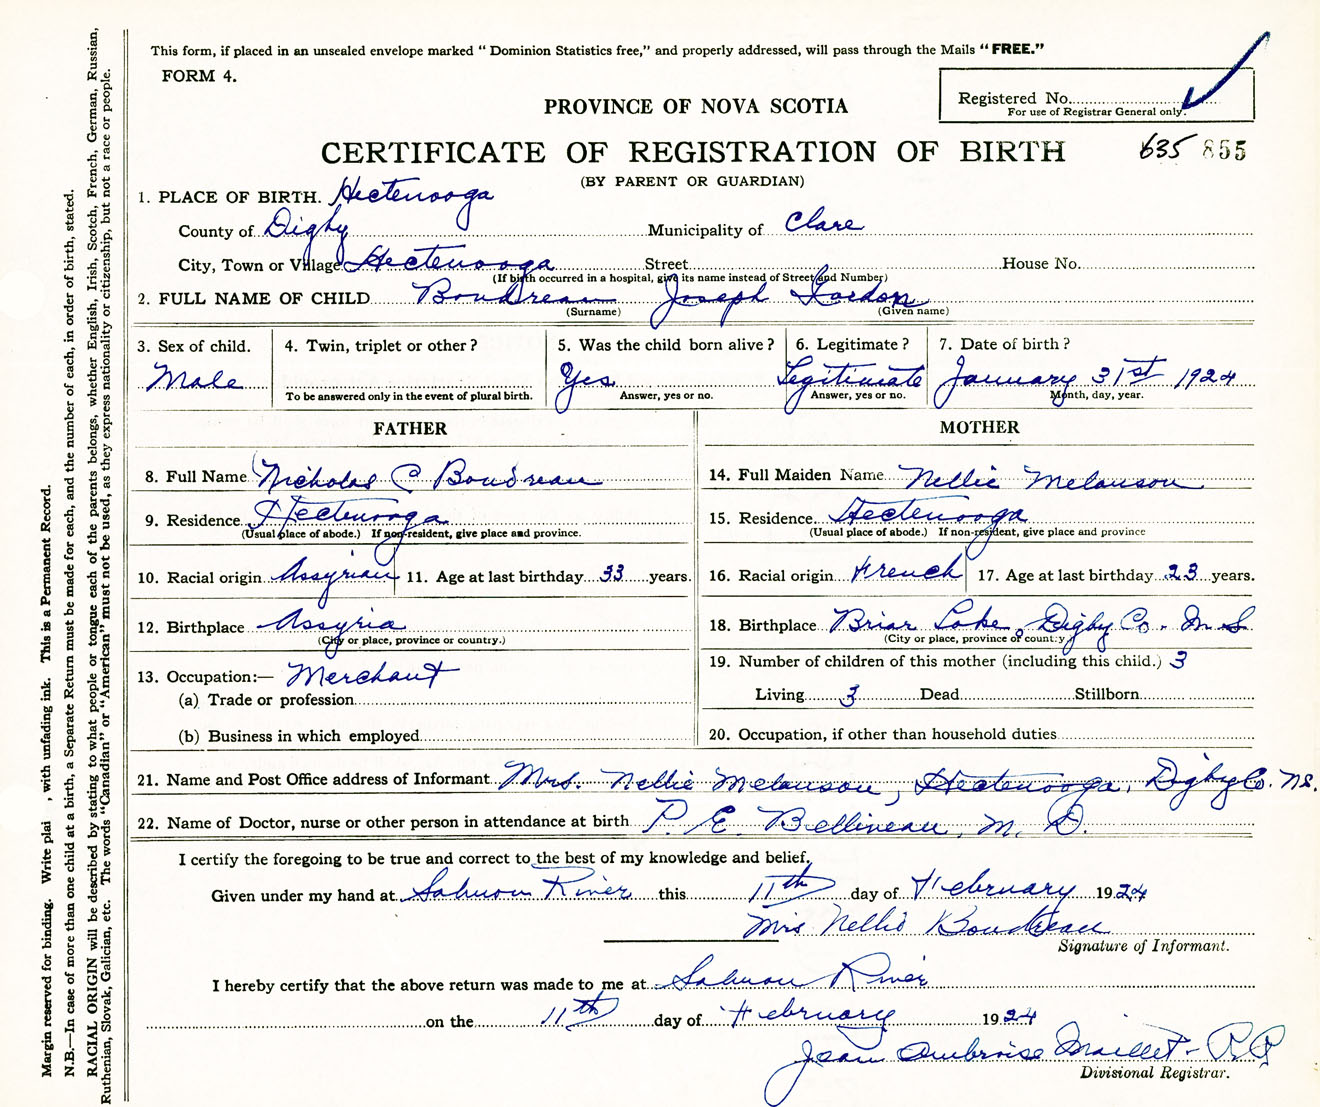 This form, if placed in an unsealed envelope marked " Dominion Statistics free," and properly addressed, will pass through the Mails " FREE."
FORM 4.
Registered No.
For use of Registrar General only.
PROVINCE OF NOVA SCOTIA
CERTIFICATE OF REGISTRATION OF BIRTH 635 855
(BY PARENT OR GUARDIAN)
1. PLACE OF BIRTH. Hectenooga
County of Digby Municipality of Clare
City, Town or Village Hectenooga Street House No.
(If birth occurred in a hospital, give its name instead of Street and Number)
2. FULL NAME OF CHILD Boudreau Joseph Gordon
(Surname) (Given name)
3. Sex of child. 4. Twin, triplet or other? 5. Was the child born alive? 6. Legitimate? 7. Date of birth?
Male Yes Legitimate January 31st 1924
To be answered only in the event of plural birth. Answer, yes or no. Answer, yes or no. Month, day, year.
FATHER
8. Full Name Nicholas C Boudreau
9. Residence Hectenooga
(Usual place of abode.) If non-resident, give place and province.
10. Racial origin Assyrian 11. Age at last birthday 33 years.
12. Birthplace Assyria
(City or place, province or country.)
13. Occupation:— Merchant
(a) Trade or profession
(b) Business in which employed
MOTHER
14. Full Maiden Name Nellie Melanson
15. Residence Hectenooga
(Usual place of abode.) If non-resident, give place and province
16. Racial origin French 17. Age at last birthday 23 years.
18. Birthplace Briar Lake, Digby Co. N S
(City or place, province or country)
19. Number of children of this mother (including this child.) 3
Living 3 Dead Stillborn
20. Occupation, if other than household duties
21. Name and Post Office address of Informant Mrs. Nellie Melanson, Hectenooga, Digby Co. N.S.
22. Name of Doctor, nurse or other person in attendance at birth P. E. Bellineau, M. D.
I certify the foregoing to be true and correct to the best of my knowledge and belief.
Given under my hand at Salmon River this 11th day of February 1924
Mrs Nellie Boudreau
Signature of Informant.
I hereby certify that the above return was made to me at Salmon River
on the 11th day of February 1924
Jean Ambroise Maillet
Divisional Registrar.
Margin reserved for binding. Write plai , with unfading ink. This is a Permanent Record.
N.B.—In case of more than one child at a birth, a Separate Return must be made for each, and the number of each, in order of birth, stated.
RACIAL ORIGIN will be described by stating to what people or tongue each of the parents belongs, whether English, Irish, Scotch, French, German, Russian,
Ruthenian, Slovak, Galician, etc. The words "Canadian" or "American" must not be used, as they express nationality or citizenship, but not a race or people.